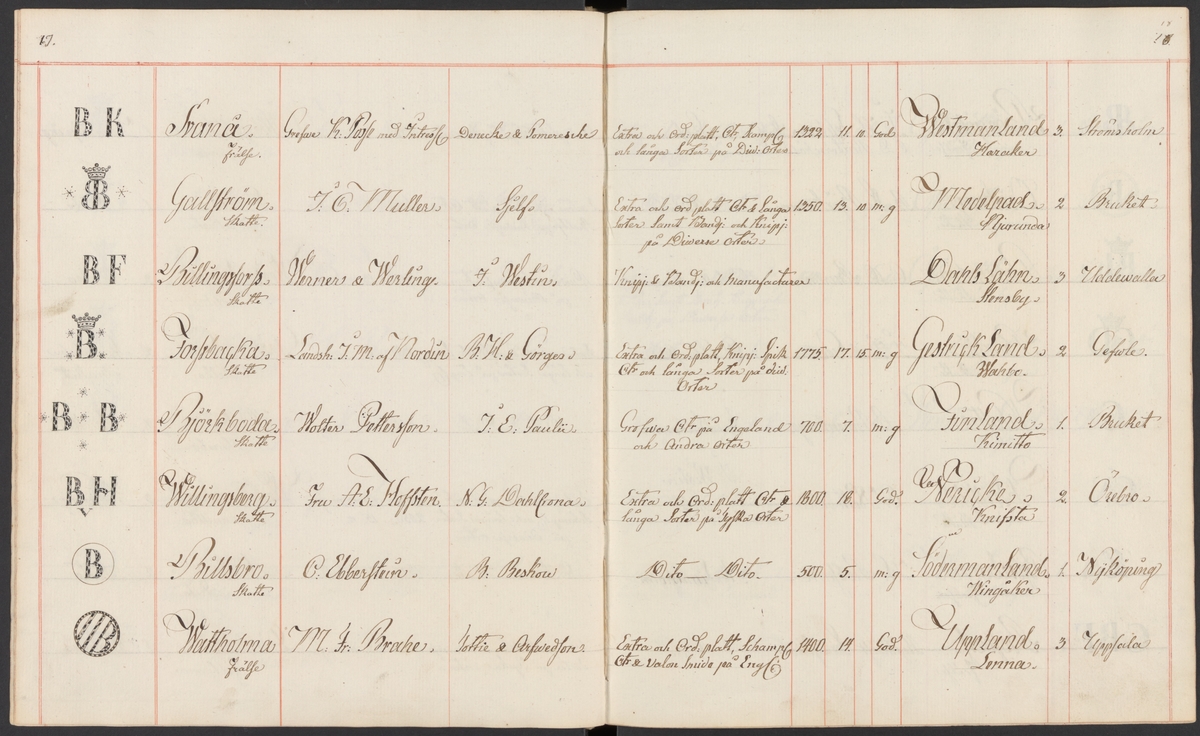 17.
18
18.
B K
Svanå.
Frälse.
Grefwe K. Posse med Intress:
Denecke & Pomeresche
Extra och Ord: platt, Ctr Kampl
och långa Sorter på Div: Orter
1322
11.
10.
God
Westmanland
Haraker
3.
Strömsholm
B
Gallström.
Skatte.
J. C. Muller.
Sjelf.
Extra och Ord. platt Ctr & Långa
Sorter Samt Band: och Knipp:
på Diverse Orter.
1350.
13.
10
m: g
Medelpad.
Njurunda
2
Bruket.
B F
Billingsforss.
Skatte
Werner & Werling.
J. Westin.
Knipp: & Band: och Manufacturer
Dahls Lähn
Stensby.
3
Uddewalla
B.
Forssbacka.
Skatte
Landsh: J. M. af Nordin
B. H. & Görges.
Extra och Ord: platt, Knipp: Spik
Ctr och långa Sorter på div.
Orter
1775
17.
15
m: g
Gestrickland.
Wahlbe.
2
Gefwle.
B B
Björkboda.
Skatte
Wolter Pettersson.
J. E: Paulii
Grofwa Ctr på Engeland
och Andra Orter
700.
7.
m: g
Finland.
Kimitto
1.
Bruket
B H
Willingsberg.
Skatte
Fru A: E: Hoffsten.
N. G. Dahlfona.
Extra och Ord: platt Ctr &
långa Sorter på Tyska Orter
1800.
18.
God.
Nericke.
Knifsta
2.
Örebro.
B
Billsbro.
Skatte
C. Ebberstein.
B. Beskow
Dito — Dito.
500.
5.
m: g
Södermanland.
Wingåker
1.
Nyköping
Wattholma
Frälse
M. Fr: Brahe.
Tottie & Arfwedson.
Extra och Ord: platt, Schampl
Ctr & Valon Smide på Engl:
1400.
14.
God.
Uppland.
Lenna.
3
Uppsala